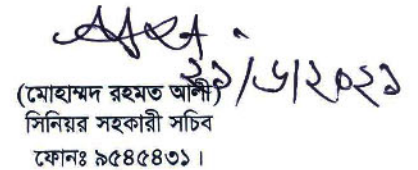 ২১/৬/২০২১
(মোহাম্মদ রহমত আলী)
সিনিয়র সহকারী সচিব
ফোনঃ ৯৫৪৫৪৩১।